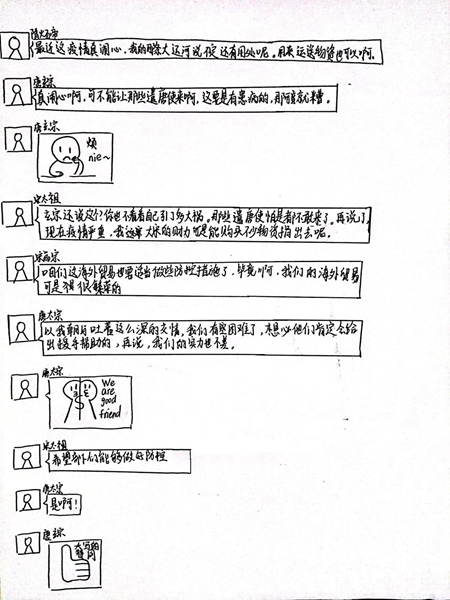 隋炀帝
最近这疫情真闹心,我的隋大运河说不定还有用处呢。用来运送物资也可以啊。
唐玄宗
真闹心啊,可不能让那些遣唐使来啊,这要是有患病的,那可就糟
唐玄宗
烦
nie~
宋太祖
玄宗还说这个?你也不看看自己引了多大祸。那些遣唐使怕是都不敢来了。再说了,
现在疫情严重,我这宋大宋的财力可是能购买不少物资捐出去呢。
宋高宗
咱们这海外贸易也要适当做些防控措施了,毕竟啊,我们的海外贸易
可是很很繁荣的
唐太宗
以我朝与吐蕃这么深的交情,我们有啥困难了,想必他们肯定会给
出援手帮助的,再说,我们的实力也不差。
唐太宗
We
are
good
friend
宋太祖
希望部门能够做好防控
唐太宗
是啊!
唐玄宗
大写的
赞同